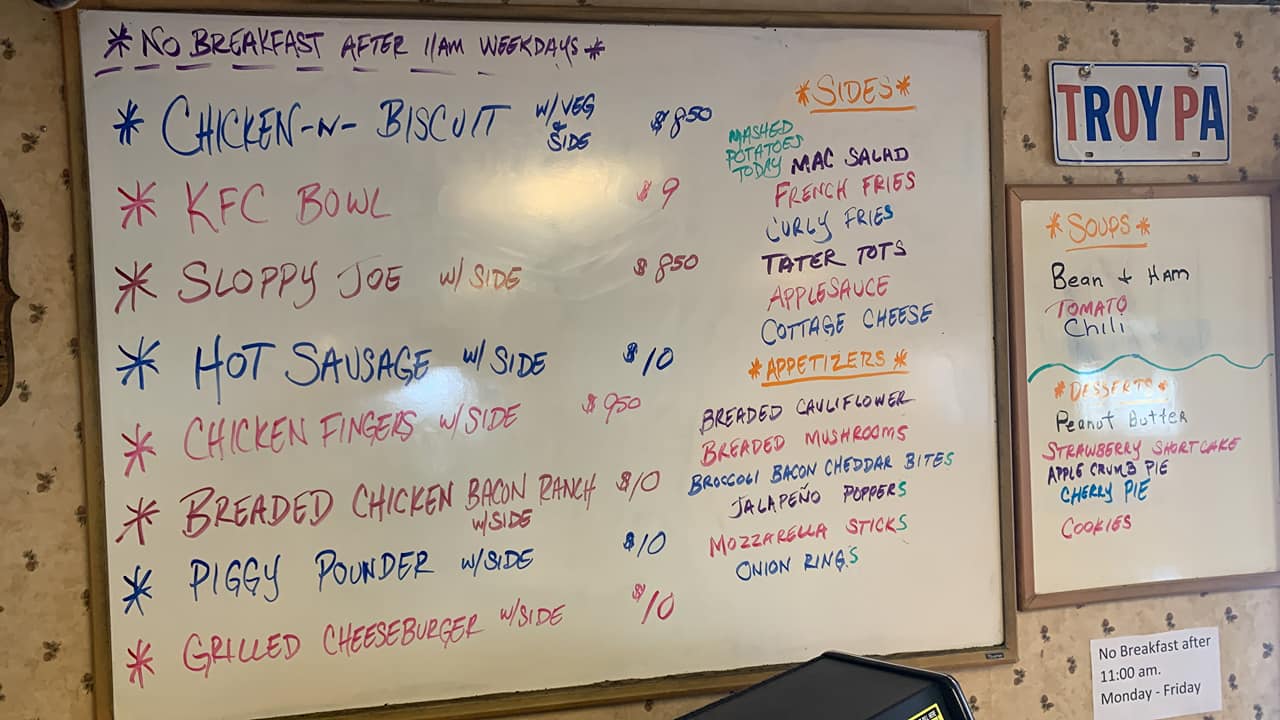 * NO BREAKFAST AFTER 11AM WEEKDAYS *
* CHICKEN-N-BISCUIT W/VEG & SIDE $8.50
* KFC BOWL $9
* SLOPPY JOE W/ SIDE $8.50
* HOT SAUSAGE W/ SIDE $10
* CHICKEN FINGERS W/SIDE $9.50
* BREADED CHICKEN BACON RANCH $10
W/SIDE
* PIGGY POUNDER W/SIDE $10
* GRILLED CHEESEBURGER W/SIDE $10
*SIDES*
MASHED
POTATOES
TODAY
MAC SALAD
FRENCH FRIES
CURLY FRIES
TATER TOTS
APPLESAUCE
COTTAGE CHEESE
*APPETIZERS*
BREADED CAULIFLOWER
BREADED MUSHROOMS
BROCCOLI BACON CHEDDAR BITES
JALAPEÑO POPPERS
MOZZARELLA STICKS
ONION RINGS
TROY PA
*SOUPS*
Bean + Ham
TOMATO
Chili
*DESSERTS*
Peanut Butter
STRAWBERRY SHORTCAKE
APPLE CRUMB PIE
CHERRY PIE
COOKIES
No Breakfast after
11:00 am.
Monday - Friday